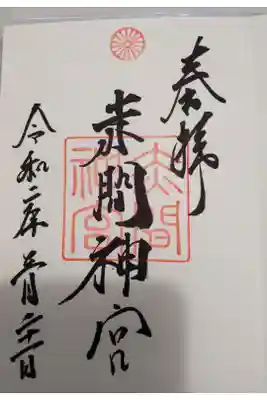 奉拝
赤間神宮
赤間
神宮
令和二年 月 日